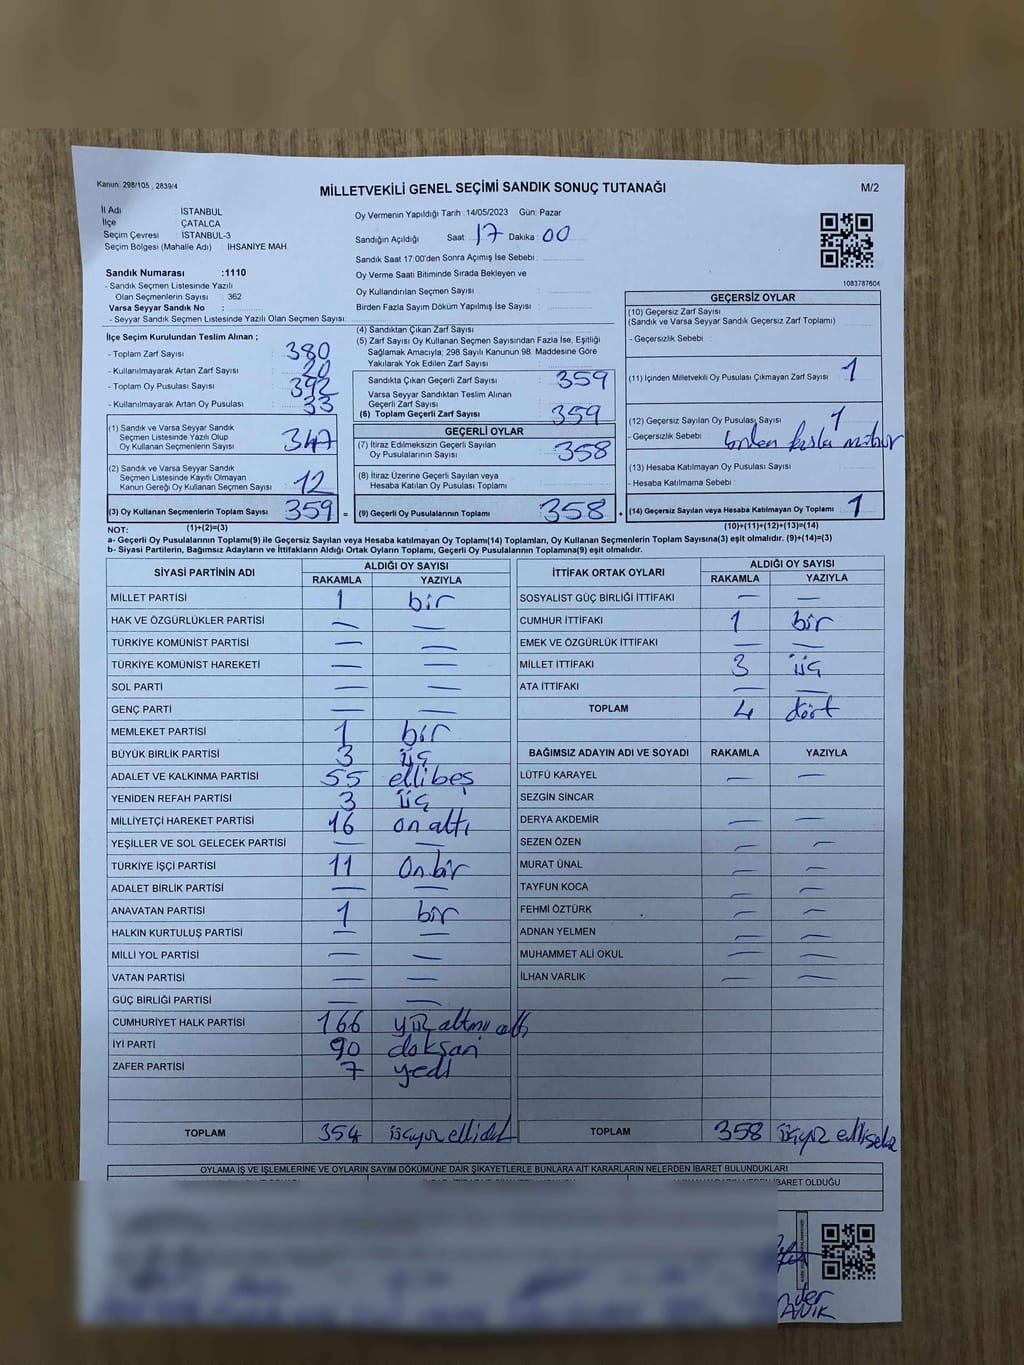 Kanun: 298/105 , 2839/4
MİLLETVEKİLİ GENEL SEÇİMİ SANDIK SONUÇ TUTANAĞI
M/2
İl Adı : İSTANBUL
İlçe : ÇATALCA
Seçim Çevresi : İSTANBUL-3
Seçim Bölgesi (Mahalle Adı) : İHSANİYE MAH.
Oy Vermenin Yapıldığı Tarih :14/05/2023 Gün: Pazar
Sandığın Açıldığı Saat 17 Dakika 00
Sandık Saat 17:00'den Sonra Açımış İse Sebebi :
Sandık Numarası :1110
- Sandık Seçmen Listesinde Yazılı
Olan Seçmenlerin Sayısı : 362
Varsa Seyyar Sandık No :
- Seyyar Seçmen Listesinde Yazılı Olan Seçmen Sayısı:
Oy Verme Saati Bitiminde Sırada Bekleyen ve
Oy Kullandırılan Seçmen Sayısı :
Birden Fazla Sayım Döküm Yapılmış İse Sayısı :
1083787604
İlçe Seçim Kurulundan Teslim Alınan ;
- Toplam Zarf Sayısı : 380
- Kullanılmayarak Artan Zarf Sayısı : 20
- Toplam Oy Pusulası Sayısı : 392
- Kullanılmayarak Artan Oy Pusulası : 33
(1) Sandık ve Varsa Seyyar Sandık
Seçmen Listesinde Yazılı Olup
Oy Kullanan Seçmenlerin Sayısı 347
(2) Sandık ve Varsa Seyyar Sandık
Seçmen Listesinde Kayıtlı Olmayan
Kanun Gereği Oy Kullanan Seçmen Sayısı 12
(3) Oy Kullanan Seçmenlerin Toplam Sayısı 359 =
(4) Sandıktan Çıkan Zarf Sayısı :
(5) Zarf Sayısı Oy Kullanan Seçmen Sayısından Fazla İse, Eşitliği
Sağlamak Amacıyla; 298 Sayılı Kanunun 98. Maddesine Göre
Yakılarak Yok Edilen Zarf Sayısı :
Sandıkta Çıkan Geçerli Zarf Sayısı : 359
Varsa Seyyar Sandıktan Teslim Alınan
Geçerli Zarf Sayısı :
(6) Toplam Geçerli Zarf Sayısı : 359
GEÇERLİ OYLAR
(7) İtiraz Edilmeksizin Geçerli Sayılan
Oy Pusulalarının Sayısı : 358
(8) İtiraz Üzerine Geçerli Sayılan veya
Hesaba Katılan Oy Pusulası Toplamı :
(9) Geçerli Oy Pusulalarının Toplamı : 358 +
GEÇERSİZ OYLAR
(10) Geçersiz Zarf Sayısı
(Sandık ve Varsa Seyyar Sandık Geçersiz Zarf Toplamı)
- Geçersizlik Sebebi :
(11) İçinden Milletvekili Oy Pusulası Çıkmayan Zarf Sayısı : 1
(12) Geçersiz Sayılan Oy Pusulası Sayısı : 1
- Geçersizlik Sebebi : fazla mühür
(13) Hesaba Katılmayan Oy Pusulası Sayısı :
- Hesaba Katılmama Sebebi :
(14) Geçersiz Sayılan veya Hesaba Katılmayan Oy Toplamı : 1
NOT: (1)+(2)=(3)
(10)+(11)+(12)+(13)=(14)
a- Geçerli Oy Pusulalarının Toplamı(9) ile Geçersiz Sayılan veya Hesaba katılmayan Oy Toplamı(14) Toplamları, Oy Kullanan Seçmenlerin Toplam Sayısına(3) eşit olmalıdır. (9)+(14)=(3)
b- Siyasi Partilerin, Bağımsız Adayların ve İttifakların Aldığı Ortak Oyların Toplamı, Geçerli Oy Pusulalarının Toplamına(9) eşit olmalıdır.
SİYASİ PARTİNİN ADI ALDIĞI OY SAYISI
RAKAMLA YAZIYLA
MİLLET PARTİSİ 1 bir
HAK VE ÖZGÜRLÜKLER PARTİSİ — —
TÜRKİYE KOMÜNİST PARTİSİ — —
TÜRKİYE KOMÜNİST HAREKETİ — —
SOL PARTİ — —
GENÇ PARTİ — —
MEMLEKET PARTİSİ 1 bir
BÜYÜK BİRLİK PARTİSİ 3 üç
ADALET VE KALKINMA PARTİSİ 55 ellibeş
YENİDEN REFAH PARTİSİ 3 üç
MİLLİYETÇİ HAREKET PARTİSİ 16 on altı
YEŞİLLER VE SOL GELECEK PARTİSİ — —
TÜRKİYE İŞÇİ PARTİSİ 11 Onbir
ADALET BİRLİK PARTİSİ — —
ANAVATAN PARTİSİ 1 bir
HALKIN KURTULUŞ PARTİSİ — —
MİLLİ YOL PARTİSİ — —
VATAN PARTİSİ — —
GÜÇ BİRLİĞİ PARTİSİ — —
CUMHURİYET HALK PARTİSİ 166 yüz altmış altı
İYİ PARTİ 90 doksan
ZAFER PARTİSİ 7 yedi
TOPLAM 354 üçyüz ellidört
İTTİFAK ORTAK OYLARI ALDIĞI OY SAYISI
RAKAMLA YAZIYLA
SOSYALİST GÜÇ BİRLİĞİ İTTİFAKI — —
CUMHUR İTTİFAKI 1 bir
EMEK VE ÖZGÜRLÜK İTTİFAKI — —
MİLLET İTTİFAKI 3 üç
ATA İTTİFAKI — —
TOPLAM 4 dört
BAĞIMSIZ ADAYIN ADI VE SOYADI RAKAMLA YAZIYLA
LÜTFÜ KARAYEL — —
SEZGİN SİNCAR
DERYA AKDEMİR — —
SEZEN ÖZEN — —
MURAT ÜNAL — —
TAYFUN KOCA — —
FEHMİ ÖZTÜRK — —
ADNAN YELMEN — —
MUHAMMET ALİ OKUL — —
İLHAN VARLIK — —
TOPLAM 358 üçyüz ellisekiz
OYLAMA İŞ VE İŞLEMLERİNE VE OYLARIN SAYIM DÖKÜMÜNE DAİR ŞİKAYETLERLE BUNLARA AİT KARARLARIN NELERDEN İBARET BULUNDUKLARI
İBARET OLDUĞU